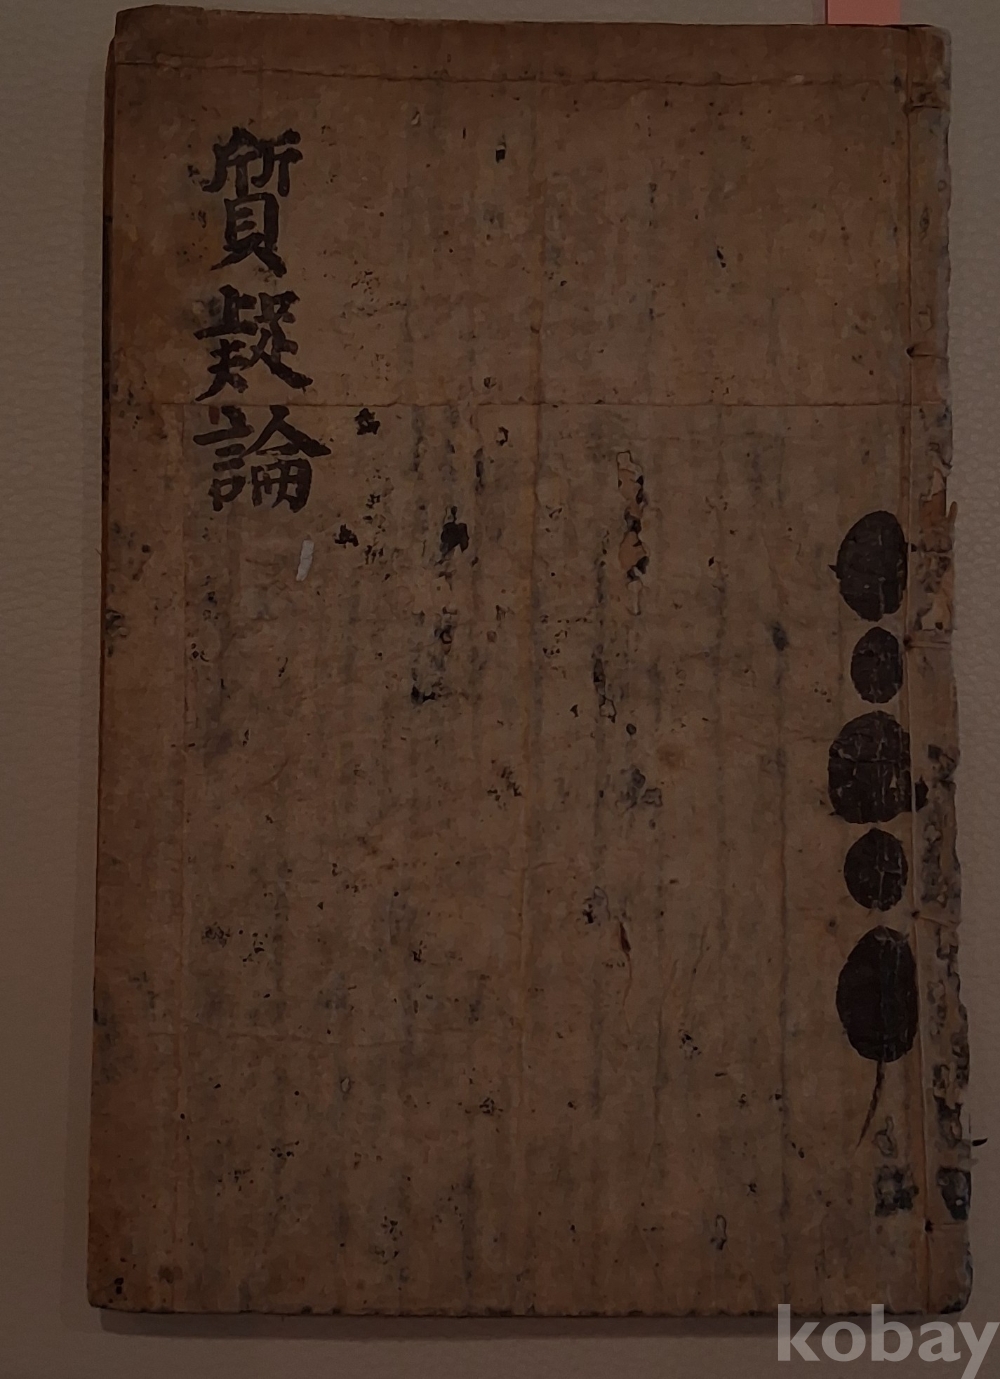 質疑論
kobay